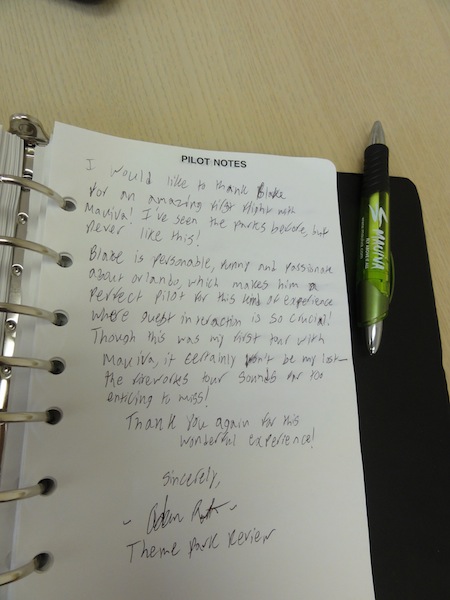 PILOT NOTES
I would like to thank Blake
for an amazing first flight with
Mauiva! I've seen the parks before, but
never like this!
Blake is personable, funny and passionate
about Orlando, which makes him a
perfect pilot for this kind of experience
where guest interaction is so crucial!
Though this was my first tour with
Mauiva, it certainly won't be my last—
the fireworks tour sounds far too
enticing to miss!
Thank you again for this
wonderful experience!
Sincerely,
- Adam -
Theme Park Review
MAUIVA